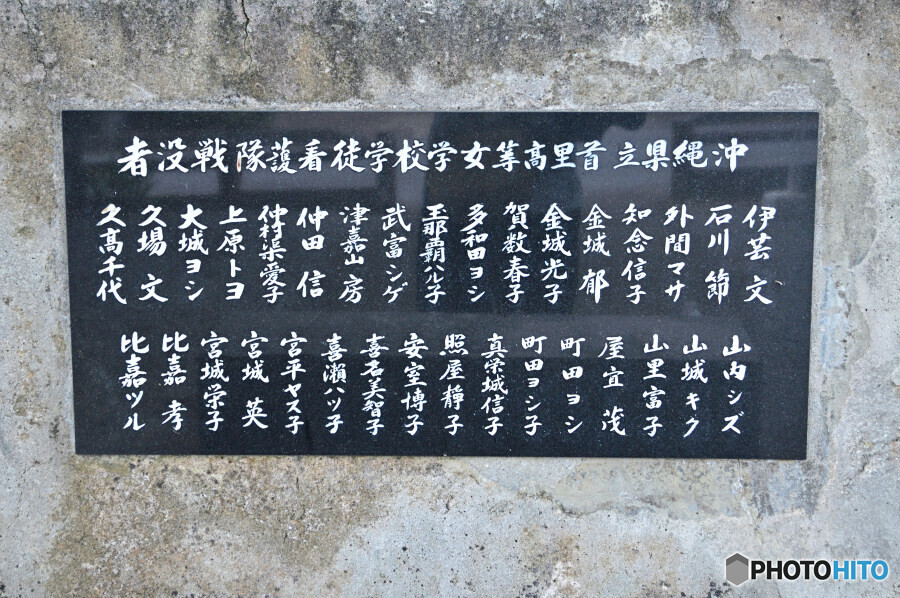 沖縄県立首里高等女学校学徒看護隊戦没者
伊芸文
石川節
外間マサ
知念信子
金城郁
金城光子
賀数春子
多和田ヨシ
玉那覇ハル子
武富シゲ
津嘉山房
仲田信
仲村渠愛子
上原トヨ
大城ヨシ
久場文
久髙千代
山内シズ
山城キク
山里富子
屋宜茂
町田ヨシ
町田ヨシ子
真栄城信子
照屋静子
安室博子
喜名美智子
喜瀬ハツ子
宮平ヤス子
宮城英
宮城栄子
比嘉孝
比嘉ツル
PHOTOHITO